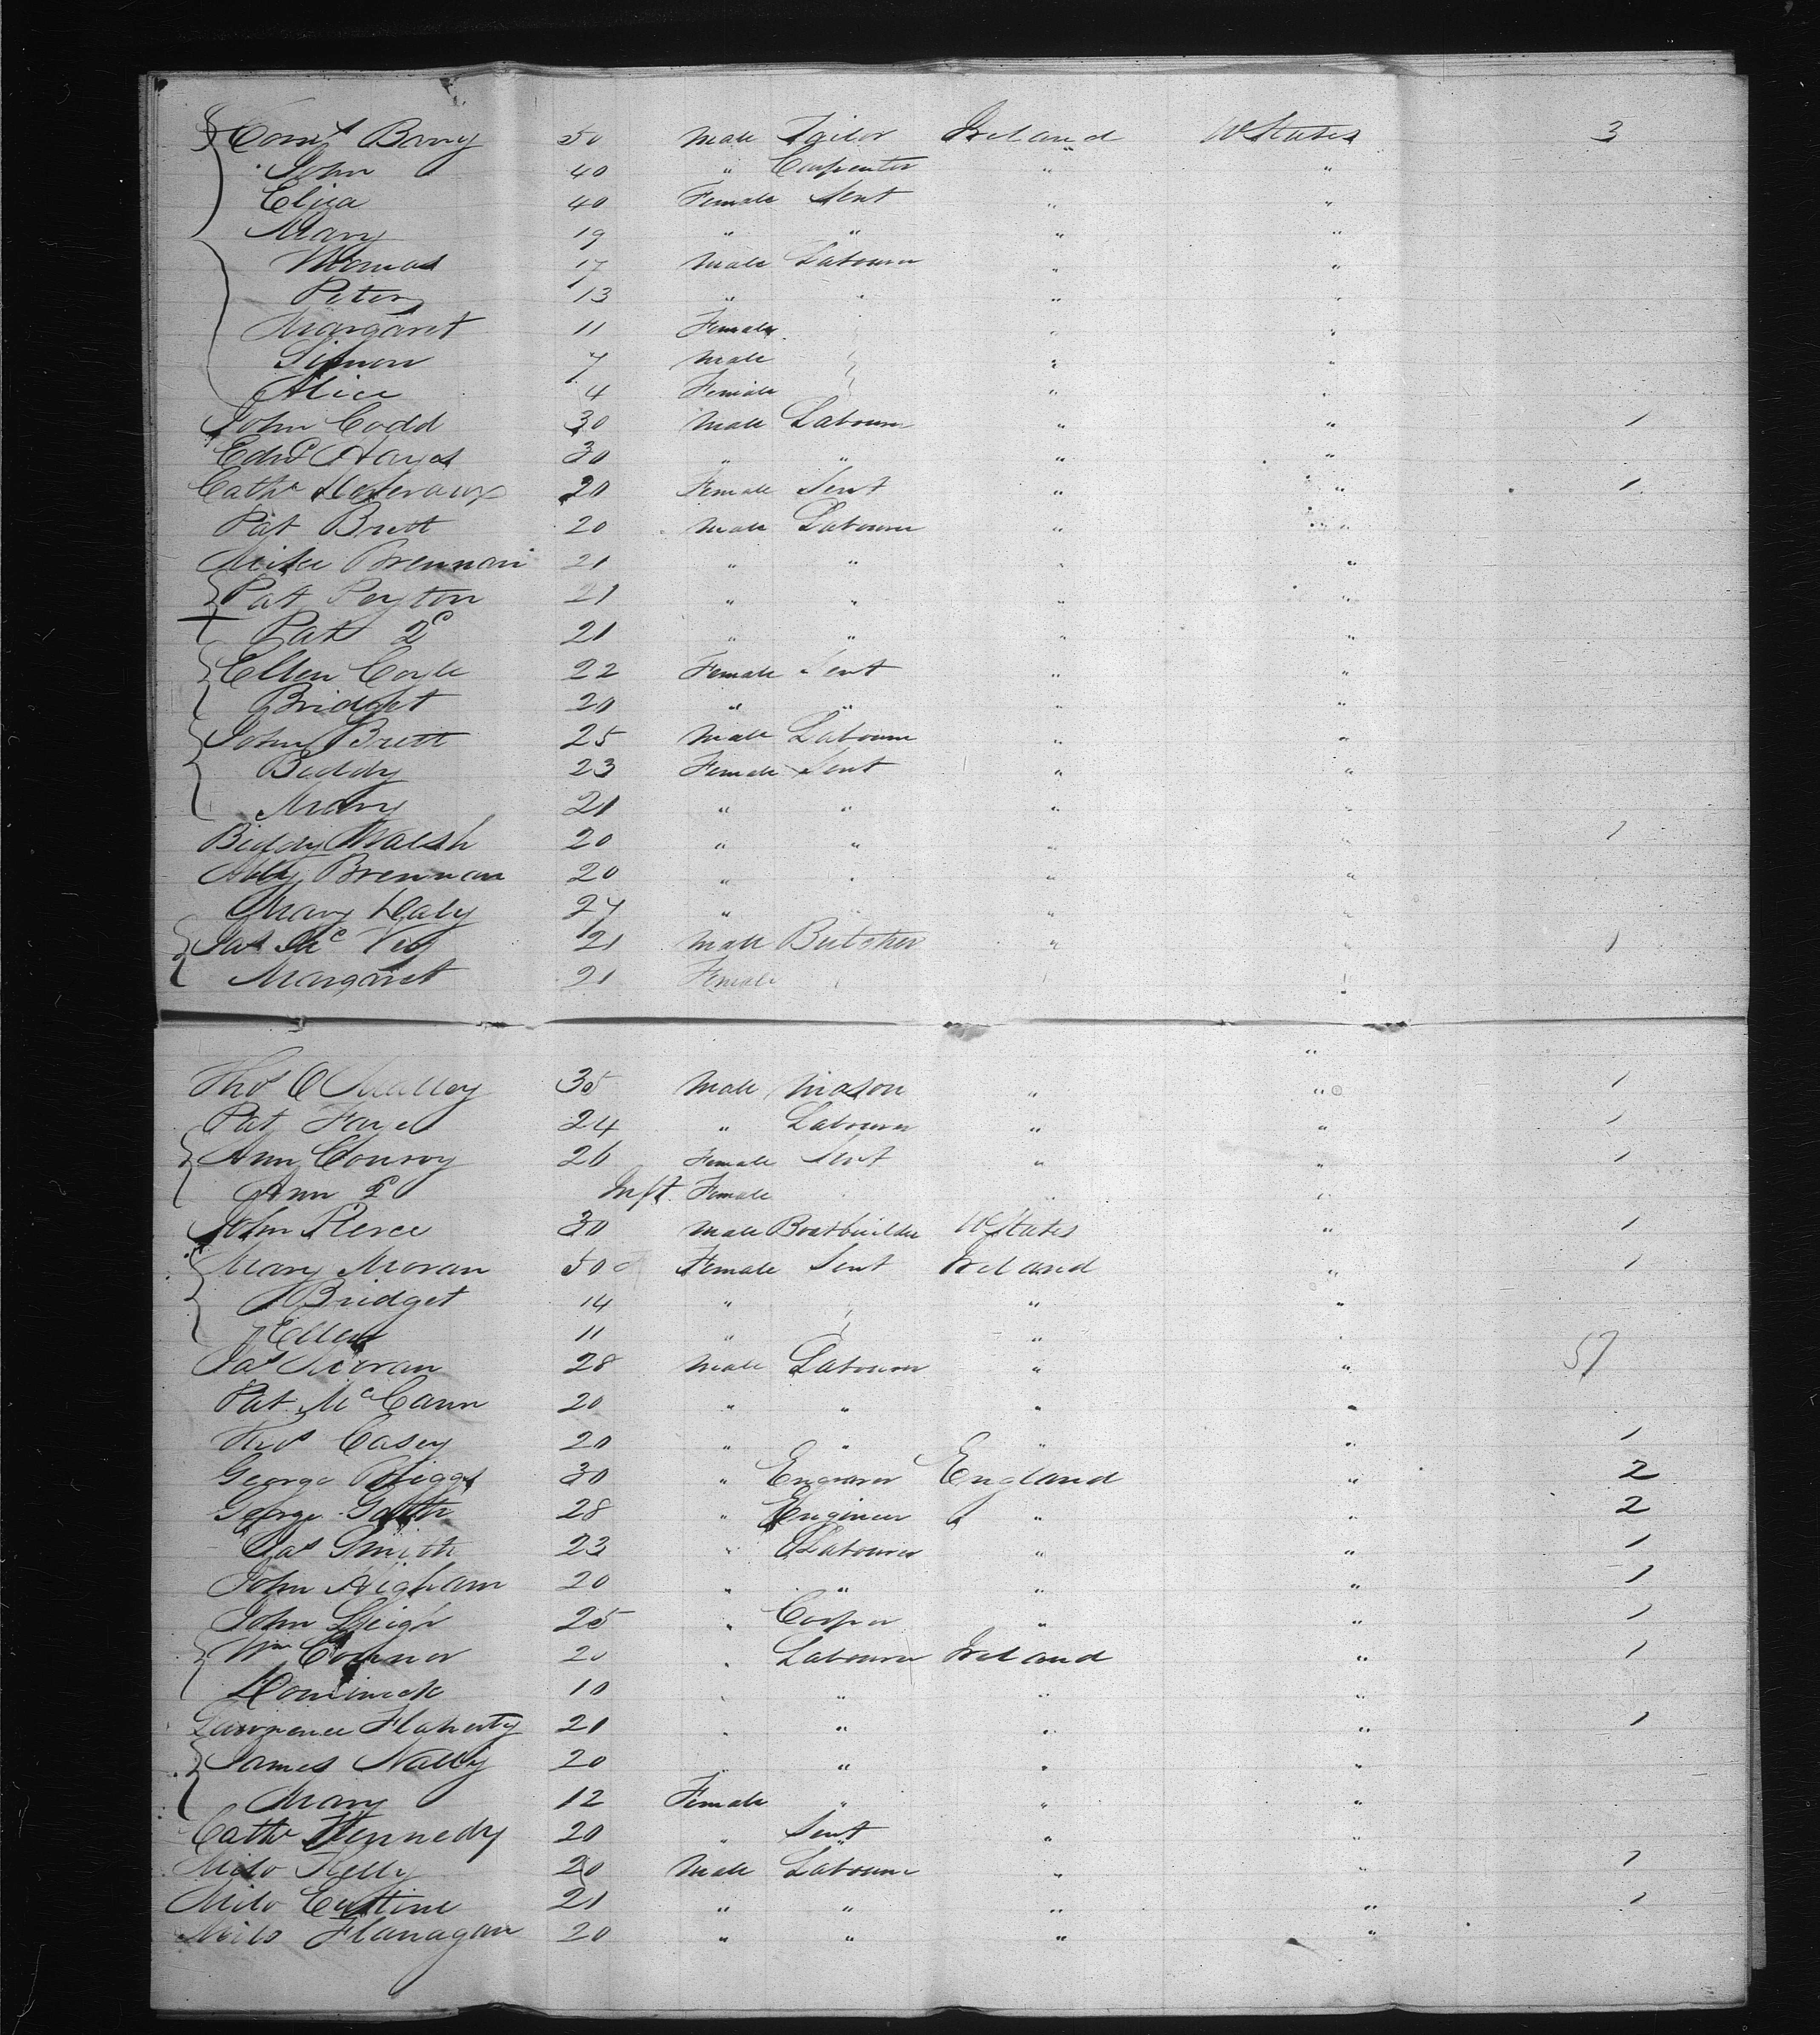 Corns Barry 50 Male Tailor Ireland U States 3
John 40 " Carpenter " "
Eliza 40 Female Sent " "
Mary 19 " " " "
Thomas 17 Male Labourer " "
Peter 13 " " " "
Margaret 11 Female " "
Simon 7 Male " "
Alice 4 Female " "
John Codd 30 Male Labourer " " 1
Edwd Hayes 30 " " " "
Cathe Devereaux 20 Female Sent " " 1
Pat Brett 20 Male Labourer " "
Mike Brennan 21 " " " "
Pat Peyton 21 " " " "
Pat Do 21 " " " "
Ellen Coyle 22 Female Sent " "
Bridget 20 " " " "
John Brett 25 Male Labourer " "
Biddy 23 Female Sent " "
Mary 21 " " " "
Biddy Walsh 20 " " " " 1
Abby Brennan 20 " " " "
Mary Daly 24 " " "
Jas Mc Vey 21 Male Butcher " " 1
Margaret 21 Female
"
Thos O Malley 35 Male Mason " " 1
Pat 24 " Labourer " " 1
Ann Conroy 26 Female Sent " " 1
Ann Do Inft Female " "
John Pierce 30 Male Boatbuilder U States " 1
Mary Moran 50 Female Sent Ireland " 1
Bridget 14 " " "
Ellen 11 " " "
Jas Moran 28 Male Labourer " " 51
Pat McCann 20 " " " "
Thos Casey 20 " " " " 1
George Briggs 30 " Engraver England " 2
George 28 " Engineer " " 2
Jas Smith 23 " Labourer " " 1
John Higham 20 " " " " 1
John Leigh 25 " Cooper " " 1
Wm Connor 20 " Labourer Ireland " 1
Dominick 10 " " " "
Lawrence Flaherty 21 " " " " 1
James Nally 20 " " " "
Mary 12 Female " " "
Cathe Kennedy 20 " Sent " "
Milo Kelly 20 Male Labourer " " 1
Milo 21 " " " " 1
Milo Flanagan 20 " " " "